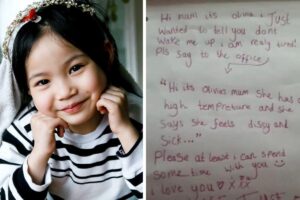 Hi mum its olivia i Just
wanted to tell you dont
wake me up i am realy tired
Pls say to the office
"Hi its olivias mum She has
high tempreture and she
says she feels dissy and
Sick..."
Please at least i can spend
some time with you
i love you xxx